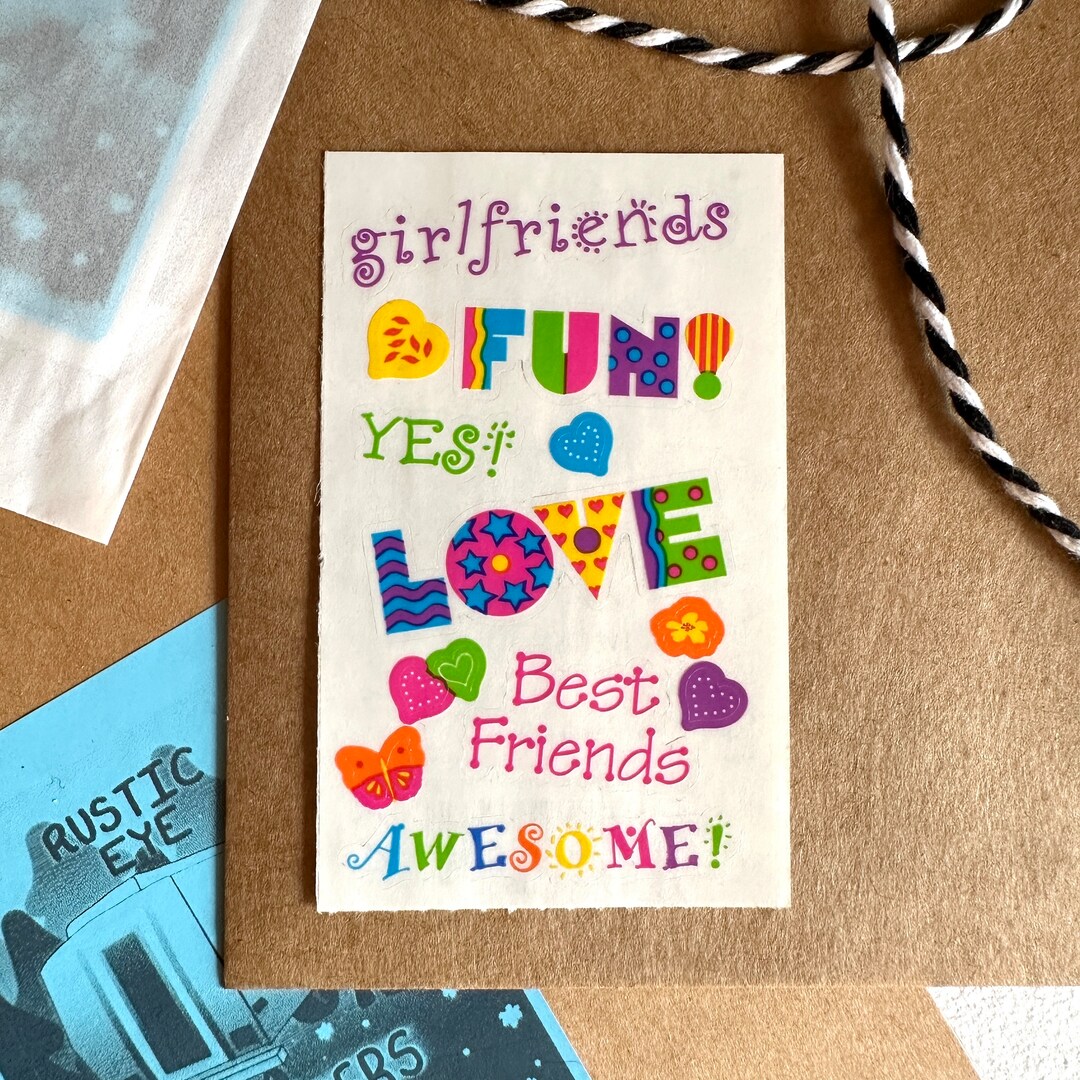 girlfriends
FUN!
YES!
LOVE
Best
Friends
AWESOME!
RUSTIC
EYE